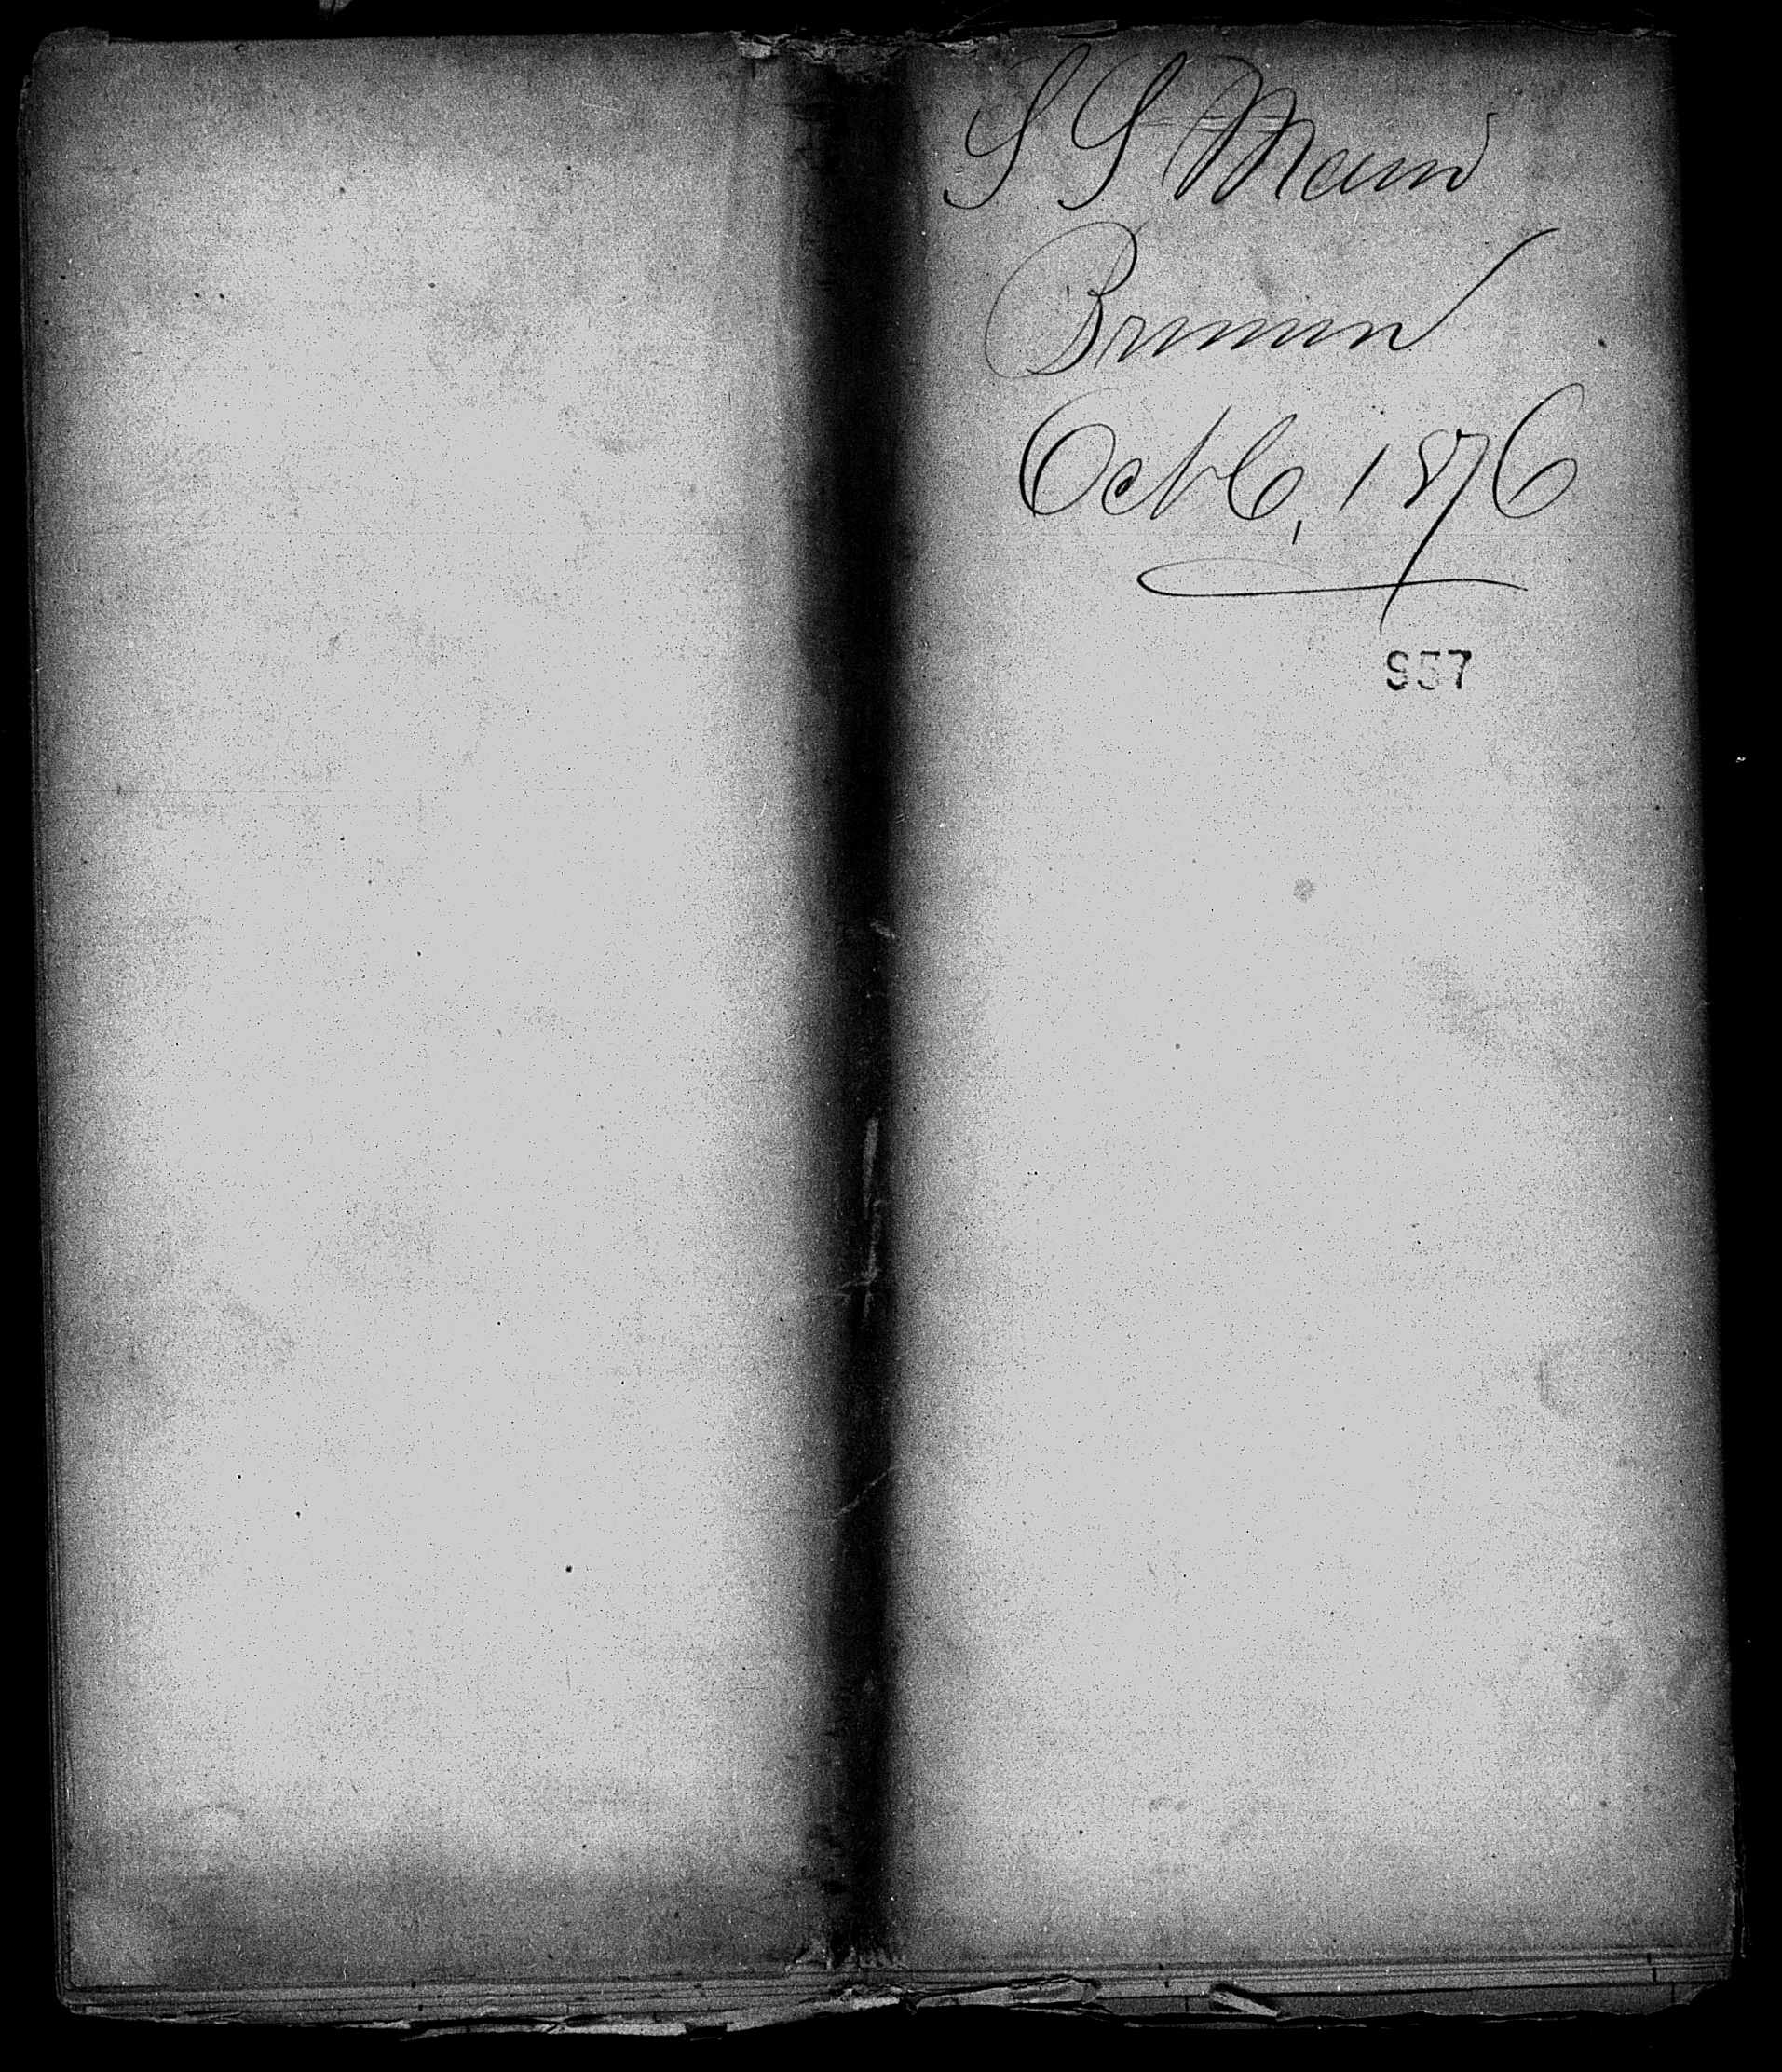 S S Main
Bremen
Oct 6, 1876
957